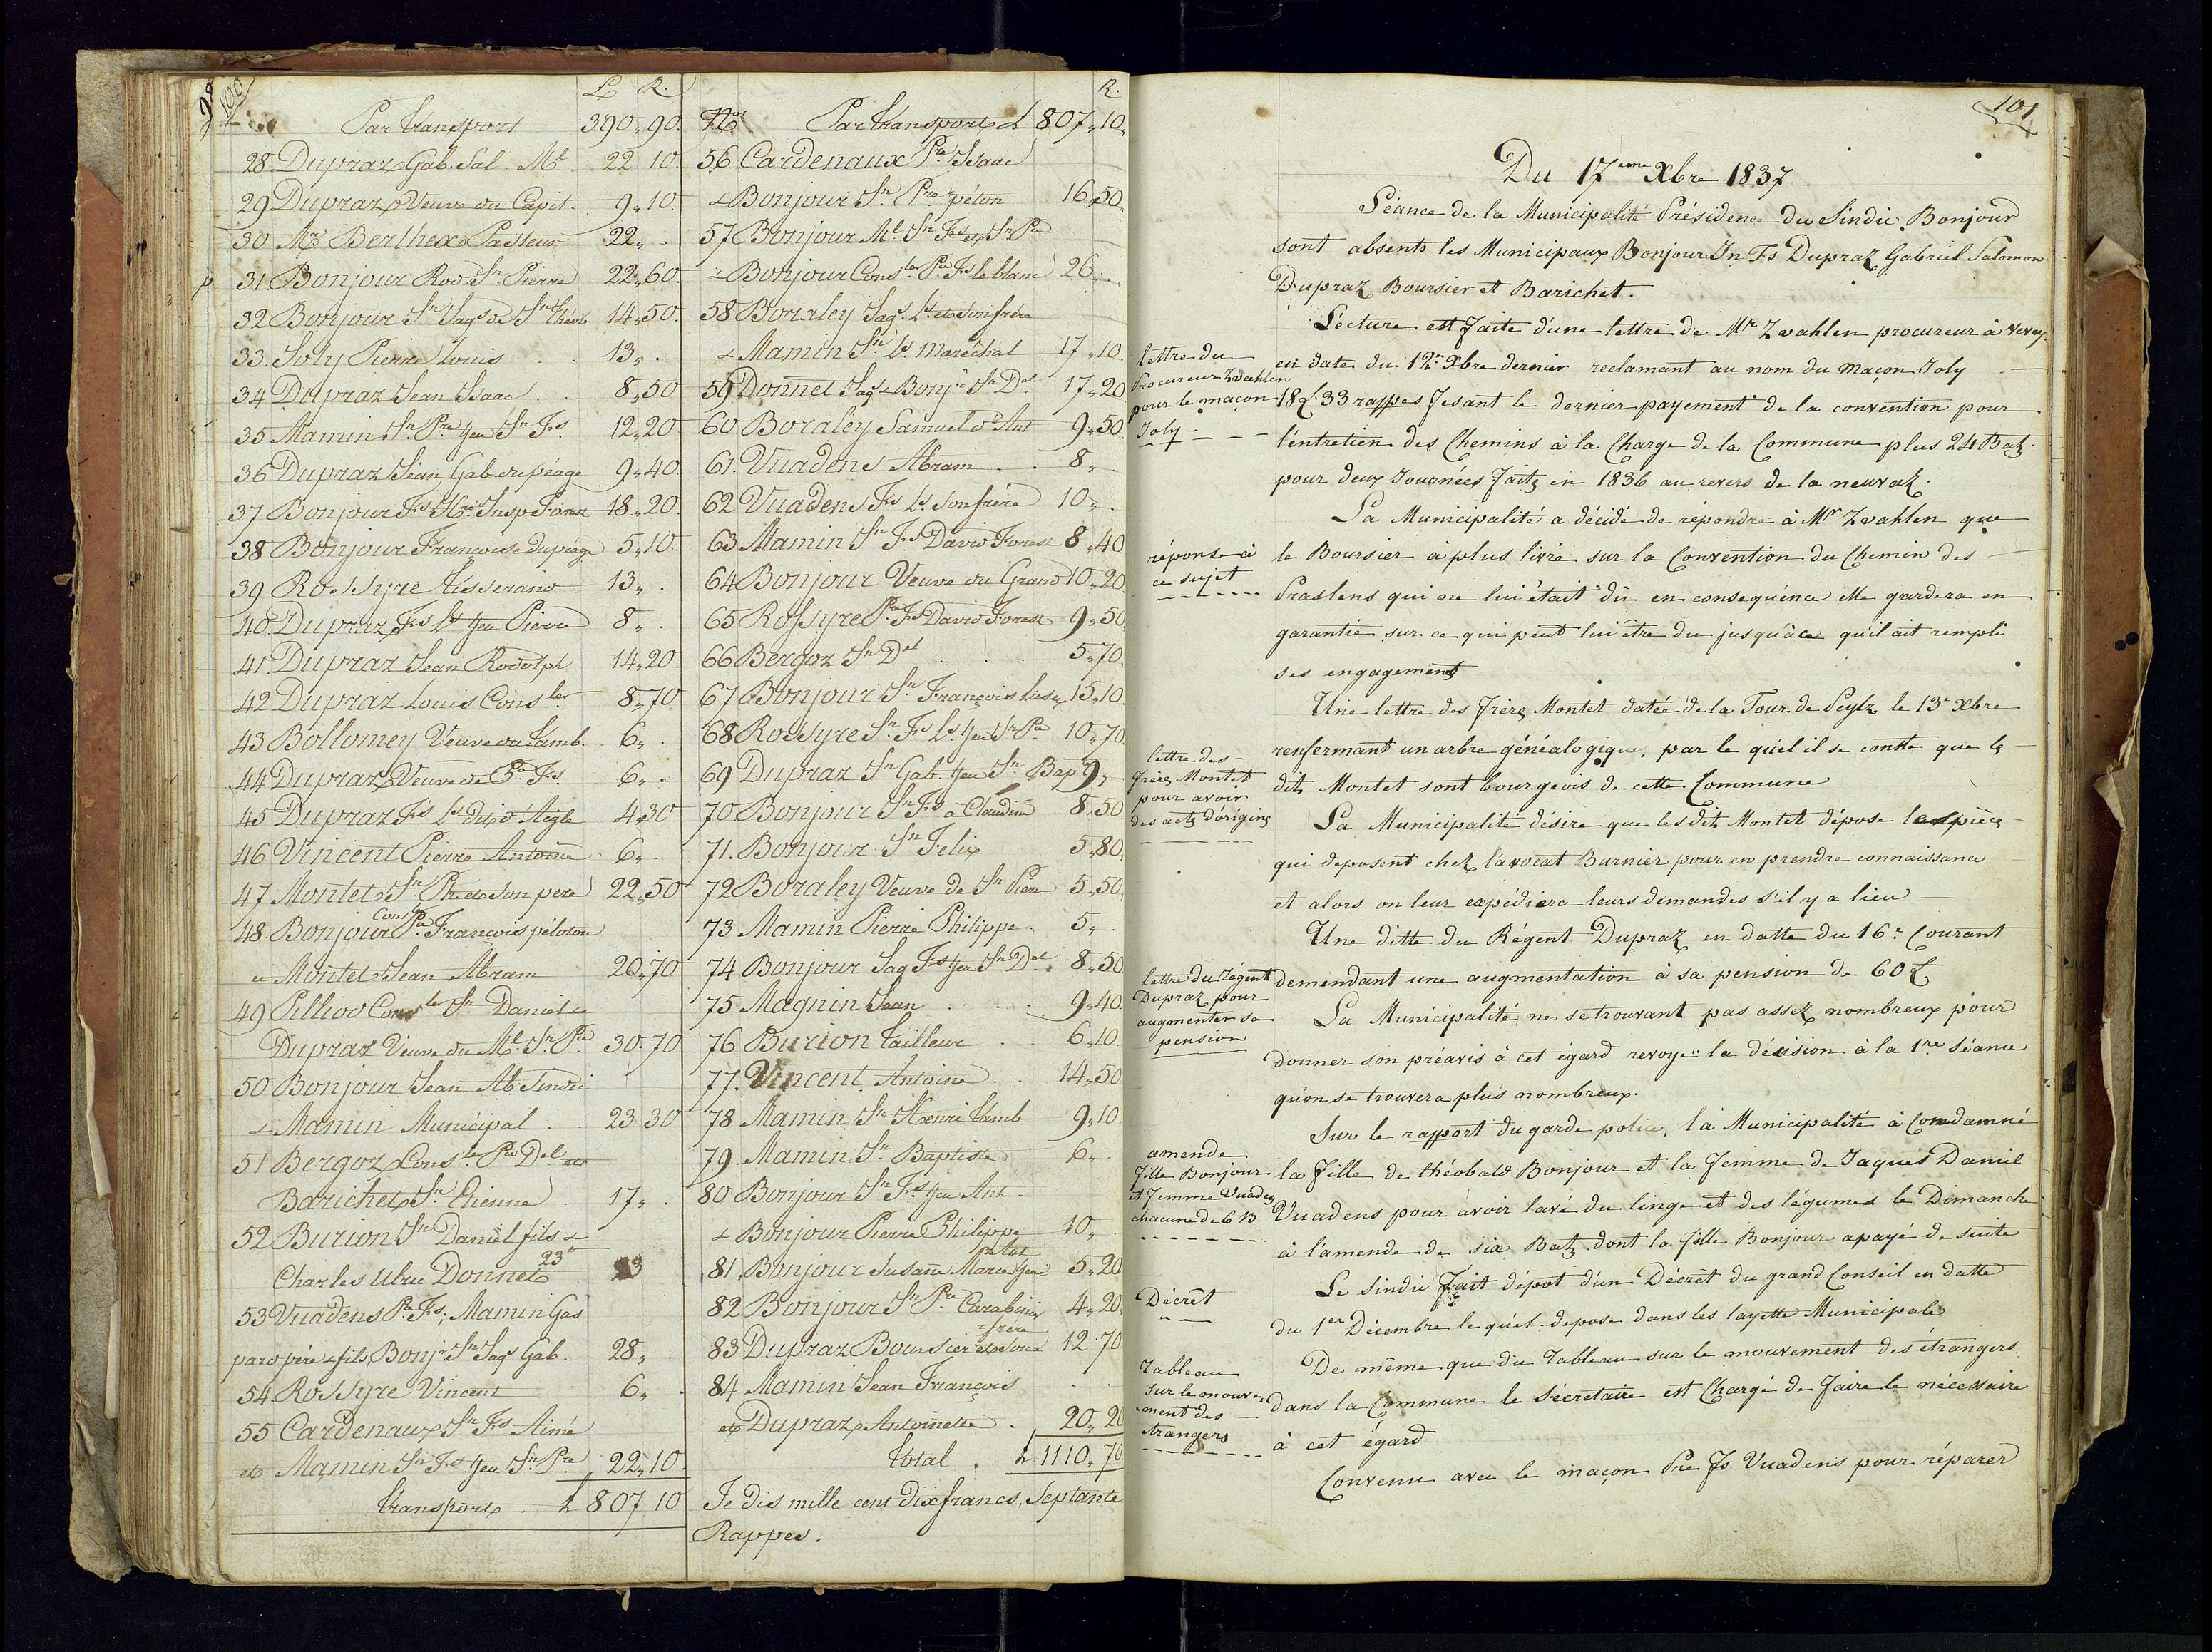 99 100
L R.
Par transport 390,, 90.
28 Dupraz Gab. Sal. Ml 22 10.
29 Dupraz Veuve du Capit. 9,, 10
30 Mr Berthex Pasteur 22,, .
p 31 Bonjour Rod. Jn Pierre 22,, 60.
32 Bonjour Jn Jaqs de Jn Théob 14,, 50.
33. Joly Pierre Louis . . 13,, .
34 Dupraz Jean Isaac . . 8,, 50
35 Mamin Jn Pre feu Jn Fs. 12,, 20
36 Dupraz Jean Gab. du péage 9,, 40.
37 Bonjour Fs Hri Insp Forest 18,, 20.
38 Bonjour Françoise du péage 5,, 10.
39 Rossyre tisserand 13,, .
40 Dupraz Fs Ls feu Pierre 8,, .
41 Dupraz Jean Rodolph 14,, 20.
42 Dupraz Louis Consler 8,, 70
43 Bollomey Veuve du tamb. 6,, .
44 Dupraz Veuve de Pre Fs. 6,, .
45 Dupraz Fs Ls dit d'Aigle 4,, 30
46 Vincent Pierre Antoine 6,, .
47 Montet Jn Ph. et son pere 22,, 50
48 Bonjour Cons Pre François péloton
et Montet Jean Abram 20,, 70
49 Pilliod Consler Jn Daniel et
Dupraz Veuve du Ml Jn Pre 30. 70
50 Bonjour Jean Ab Sindic
& Mamin Municipal . . 23 30
51 Bergoz Consler Pre Del et
Barichet Jn Etienne 17,, .
52 Burion Jn Daniel fils &
Charles Ulric Donnet 23" 23
53 Vuadens Pre Fs, Mamin Gas
pard père & fils, Bonjr Jn Jaqs Gab. 28,, .
54 Rossyre Vincent 6,, .
55 Cardenaux Jn Fs Aimé
et Mamin Jn Fs feu Jn Pre. 22,, 10
transport . L 807 10
R.
Nos Par transport L 807,, 10,
56 Cardenaux Pre Isaac
& Bonjour Jn Pre péton 16,, 50,
57 Bonjour Ml Jn Fs et Jn Pre
& Bonjour Consler Pre Fs le blanc 26,, .
58 Boraley Jaqs. Ls. et son frère
& Mamin Jn Ls Maréchal 17,, 10.
59 Donnet Jaqs & Bonjr Jn Del 17,, 20
60 Boraley Samuel d'Ant 9,, 50.
61. Vuadens Abram . . 8,,
62 Vuadens Fs Ls. son frère 10,, .
63 Mamin Jn Fs David Forest 8,, 40
64 Bonjour Veuve du Grand 10,, 20
65 Rossyre Pre Fs David Forest 9,, 50,
66 Bergoz Jn Del . . . 5,, 70,
67 Bonjour Jn François 15,, 10
68 Rossyre Jn. Fs Ls feu Jn Pre 10,, 70
69 Dupraz Jn Gab. feu Jn Bapt 9,,
70 Bonjour Jn Fs à Claudine 8,, 50,
71. Bonjour Jn Felix 5,, 80,
72 Boraley Veuve de Jn Pierre 5,, 50,
73 Mamin Pierre Philippe. 5,,
74 Bonjour Jaq Fs feu Jn Del. 8,, 50
75 Magnin Jean . . . 9,, 40.
76 Burion tailleur . . 6,, 10.
77. Vincent Antoine . . 14,, 50.
78 Mamin Jn Henri tamb 9,, 10.
79. Mamin Jn Baptiste 6,, .
80 Bonjour Jn Fs feu Ant.
& Bonjour Pierre Philippe 10,, .
81. Bonjour Susane Marie feu 5,, 20
82. Bonjour Jn Pre Carabinier 4,, 20,
83 Dupraz Boursier et son frère 12. 70
84 Mamin Jean François
et Dupraz Antoinette . 20,, 20
total . L 1110,, 70
Je dis mille cent dix francs, Septante
Rappes.
101
Du 17eme Xbre 1837
Séance de la Municipalité Présidence du Sindic. Bonjour
sont absents les Municipaux Bonjour Jn Fs Dupraz Gabriel Salomon
Dupraz Boursier et Barichet.
Lecture est faite d'une lettre de Mr Zwahlen procureur à Vevey.
lettre du
procureur Zwahlen
pour le maçon
Joly -
en date du 12e Xbre dernier reclamant au nom du maçon Joly
18 L 33 rappes fesant le dernier payement de la convention pour
l'entretien des Chemins à la Charge de la Commune plus 24 Batz.
pour deux Journées faits en 1836 au revers de la neuvaz.
La Municipalité a décidé de répondre à Mr Zwahlen que
réponse à
ce sujet
le Boursier à plus livré sur la Convention du Chemin des
Praslens qui ne lui était dû en conséquence elle gardera en
garantie sur ce qui peut lui être du jusqu'à ce qu'il ait rempli
ses engagements
Une lettre des frères Montet datée de la Tour de Peylz le 13e Xbre
lettre des
frères Montet
pour avoir
des acts d'origine
renfermant un arbre généalogique, par le quel il se conste que ls
dits Montet sont bourgeois de cette Commune
La Municipalité désire que les dits Montet dépose les pièces
qui deposent chez l'avocat Burnier pour en prendre connaissance
et alors on leur expédiera leurs demandes s'il y a lieu
Une ditte du Régent Dupraz en datte du 16e Courant
lettre du régent
Dupraz pour
augmenter sa
pension
demendant une augmentation à sa pension de 60 L
La Municipalité ne se trouvant pas assez nombreux pour
donner son préavis à cet égard revoye la décision à la 1re Séance
qu'on se trouvera plus nombreux.
Sur le rapport du garde police, la Municipalité à Condamné
amende
fille Bonjour
et femme Vuadens
chacune de 6 B
la fille de théobald Bonjour et la femme de Jaques Daniel
Vuadens pour avoir lavé du linge et des légumes le Dimanche
à l'amende de six Batz dont la fille Bonjour a payé de suite
Décrêt
Le Sindic fait dépot d'un Décrêt du grand Conseil en datte
du 1er Décembre le quel depose dans les layette Municipale
Tableau
sur le mouve
ment des
étrangers
De même que du Tableau sur le mouvement des étrangers
dans la Commune le Sécretaire est Chargé de faire le nécessaire
à cet égard
Convenu avec le maçon Pre Fs Vuadens pour réparer